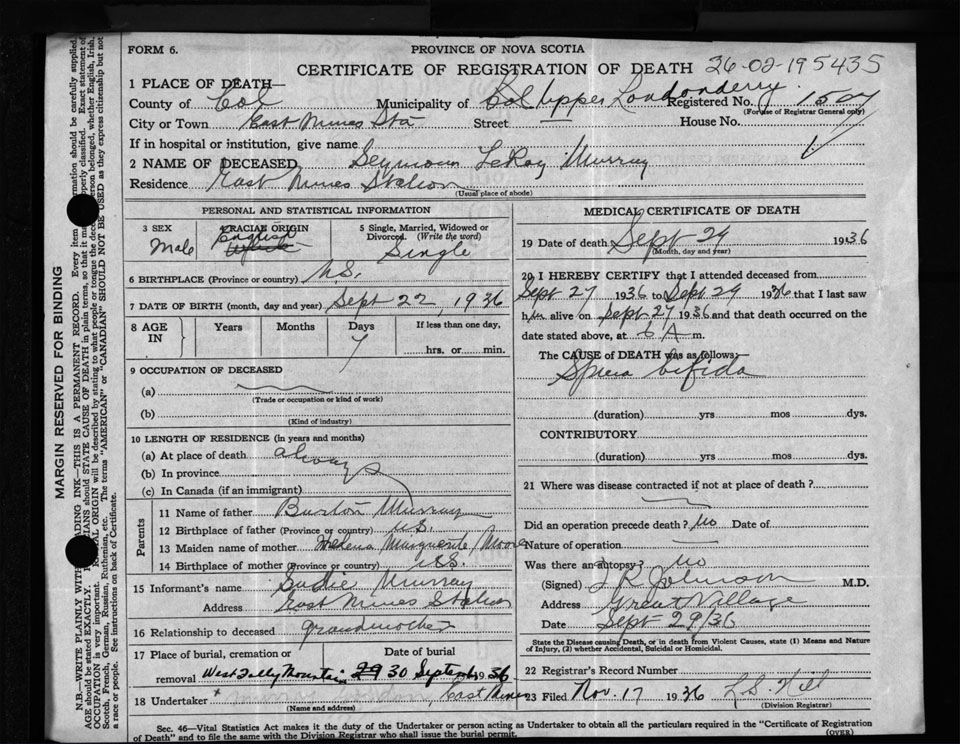 FORM 6.
PROVINCE OF NOVA SCOTIA
CERTIFICATE OF REGISTRATION OF DEATH 26-02-195435
1 PLACE OF DEATH—
County of Col Municipality of Col Upper Londonderry Registered No. 1507
(For use of Registrar General only)
City or Town East Mines Sta Street House No.
If in hospital or institution, give name
2 NAME OF DECEASED Seymour LeRoy Murray
Residence East Mines Station
(Usual place of abode)
PERSONAL AND STATISTICAL INFORMATION
3 SEX
Male
4 RACIAL ORIGIN
English
5 Single, Married, Widowed or Divorced. (Write the word)
Single
6 BIRTHPLACE (Province or country) N.S.
7 DATE OF BIRTH (month, day and year) Sept 22, 1936
8 AGE IN
Years Months Days If less than one day,
7 hrs. or min.
9 OCCUPATION OF DECEASED
(a)
(Trade or occupation or kind of work)
(b)
(Kind of industry)
10 LENGTH OF RESIDENCE (in years and months)
(a) At place of death always
(b) In province
(c) In Canada (if an immigrant)
Parents
11 Name of father Burton Murray
12 Birthplace of father (Province or country) N.S.
13 Maiden name of mother Helena Marguerite Moore
14 Birthplace of mother (Province or country) N.S.
15 Informant's name Sadie Murray
Address East Mines Station
16 Relationship to deceased grandmother
17 Place of burial, cremation or removal Date of burial
West Folly Mountain 29 30 September 1936
18 Undertaker East Mines
(Name and address)
MEDICAL CERTIFICATE OF DEATH
19 Date of death Sept 29 1936
(Month, day and year)
20 I HEREBY CERTIFY that I attended deceased from
Sept 27 1936 to Sept 29 1936 that I last saw
him alive on Sept 27 1936 and that death occurred on the
date stated above, at 6 A m.
The CAUSE of DEATH was as follows:
Spina bifida
(duration) yrs mos dys.
CONTRIBUTORY
(duration) yrs mos dys.
21 Where was disease contracted if not at place of death?
Did an operation precede death? no Date of
Nature of operation
Was there an autopsy? no
(Signed) Johnson M.D.
Address Great Village
Date Sept 29/36
State the Disease causing Death, or in death from Violent Causes, state (1) Means and Nature
of Injury, (2) whether Accidental, Suicidal or Homicidal.
22 Registrar's Record Number
23 Filed Nov. 17 1936 L.S. Hill
(Division Registrar)
Sec. 46—Vital Statistics Act makes it the duty of the Undertaker or person acting as Undertaker to obtain all the particulars required in the "Certificate of Registration
of Death" and to file the same with the Division Registrar who shall issue the burial permit. (OVER)
MARGIN RESERVED FOR BINDING
N.B.—WRITE PLAINLY WITH ADING INK—THIS IS A PERMANENT RECORD. Every item rmation should be carefully supplied.
AGE should be stated EXACTLY. IANS should STATE CAUSE OF DEATH in plain terms, so that it may operly classified. Exact statement of
OCCUPATION is very important. ORIGIN will be described by stating to what people or tongue the dece erson belonged, whether English, Irish,
Scotch, French, German, Russian, Ruthenian, etc. The terms "AMERICAN" or "CANADIAN" SHOULD NOT BE USED as they express citizenship but not
a race or people. See instructions on back of Certificate.